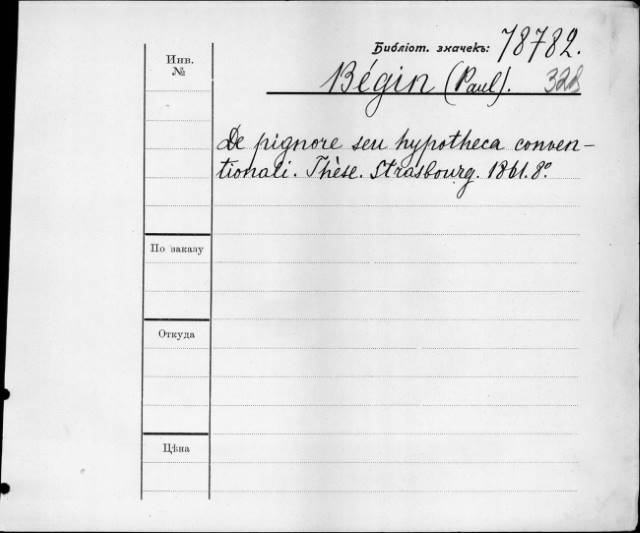 Библіот. значекъ: 78782.
Инв. №
Bégin (Paul). 328
De pignore seu hypotheca conven-
tionali. Thèse. Strasbourg. 1861. 8º
По заказу
Откуда
Цѣна